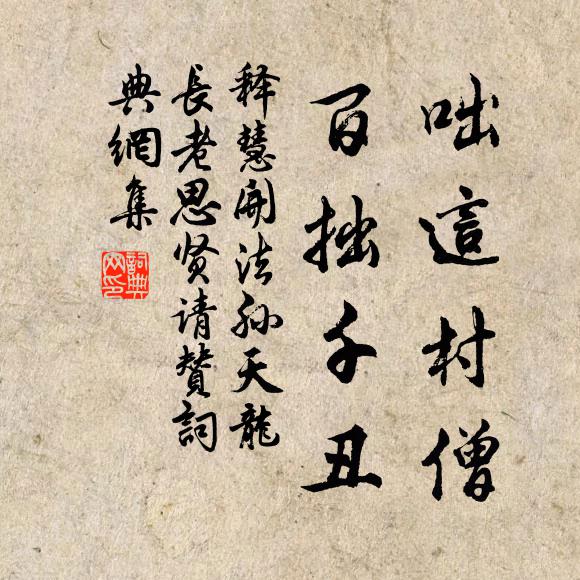 咄這村僧
百拙千丑
释慧開法孙天龍
長老思贤请贊詞
典網集
詞典網印